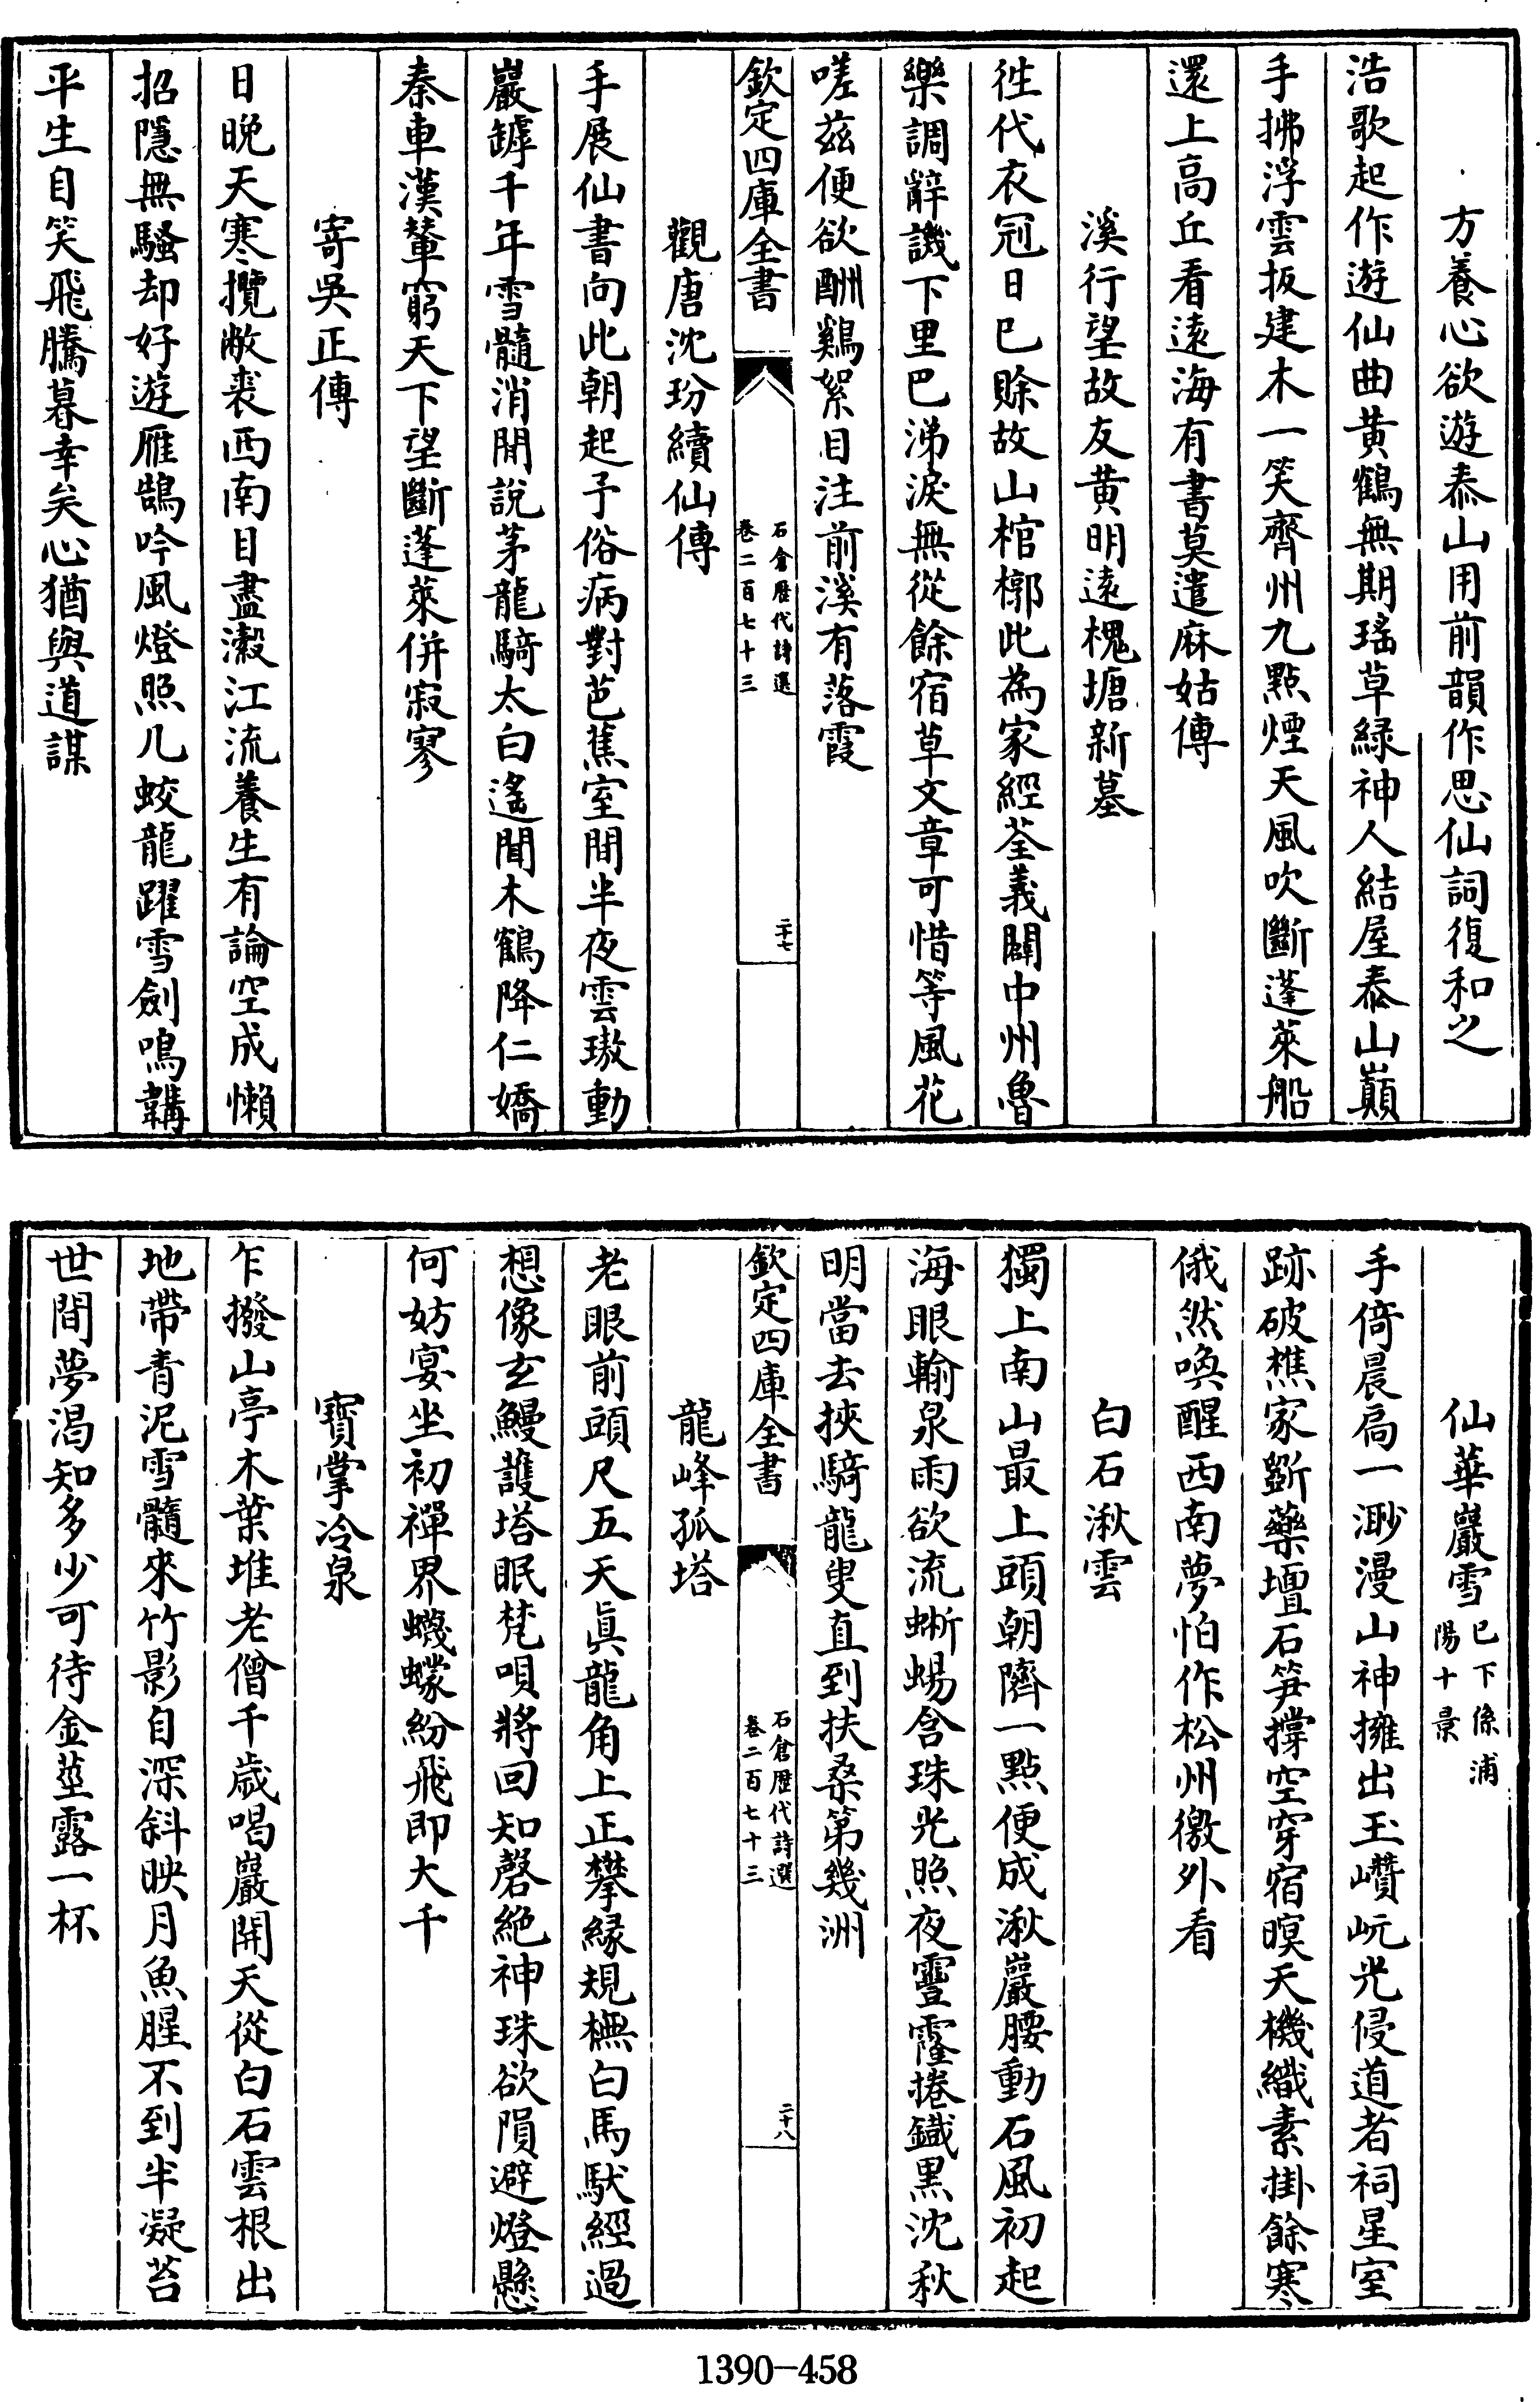 方養心欲遊泰山用前韻作思仙詞復和之
浩歌起作遊仙曲黄鶴無期瑤草緑神人結屋泰山巔
手拂浮雲扳建木一笑齊州九點煙天風吹斷蓬萊船
還上高丘看遠海有書莫遣麻姑傳
溪行望故友黄明遠槐塘新墓
徃代衣冠日已賖故山棺槨此為家經荃義闢中州魯
樂調辭譏下里巴涕淚無從餘宿草文章可惜等風花
嗟兹便欲酬鷄絮目注前溪有落霞
欽定四庫全書
石倉歷代詩選
卷二百七十三
二十七
觀唐沈玢續仙傳
手展仙書向此朝起予俗病對芭蕉室間半夜雲璈動
巖罅千年雪髓消閒說茅龍騎太白遙聞木鶴降仁嬌
秦車漢輦窮天下望斷蓬萊併寂寥
寄吳正傳
日晚天寒攬敝裘西南目盡瀫江流養生有論空成懶
招隱無騷却好遊雁鵠吟風燈照几蛟龍躍雪劍鳴韝
平生自笑飛騰暮幸矣心猶與道謀
仙華巖雪
已下係浦
陽十景
手倚晨扃一渺漫山神擁出玉巑岏光侵道者祠星室
跡破樵家斵藥壇石笋撑空穿宿暝天機織素掛餘寒
俄然喚醒西南夢怕作松州徼外看
白石湫雲
獨上南山最上頭朝隮一點便成湫巖腰動石風初起
海眼輸泉雨欲流蜥蜴含珠光照夜靊霳捲鐡黒沈秋
明當去挾騎龍叟直到扶桑第幾洲
欽定四庫全書
石倉歷代詩選
卷二百七十三
二十八
龍峰孤塔
老眼前頭尺五天真龍角上正攀緣規橅白馬馱經過
想像玄鰻護塔眠梵唄將回知磬絶神珠欲隕避燈懸
何妨宴坐初禪界蠛蠓紛飛即大千
寳掌冷泉
乍撥山亭木葉堆老僧千歲喝巖開天從白石雲根出
地帶青泥雪髓來竹影自深斜映月魚腥不到半凝苔
世間夢渴知多少可待金莖露一杯
1390-458